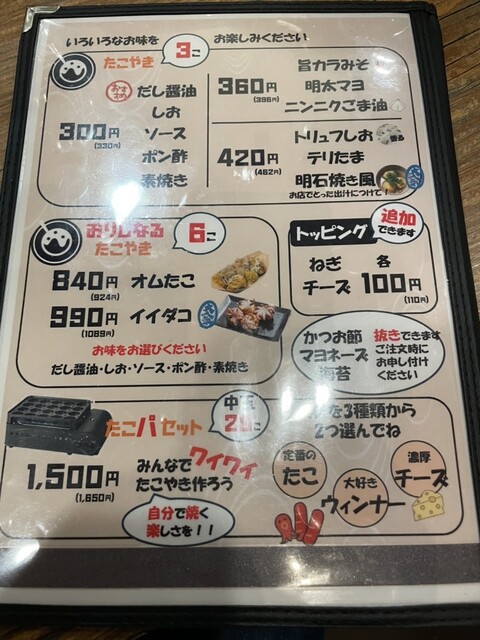 いろいろなお味を 3こ お楽しみください
たこやき
おすすめ だし醤油
しお
300円 ソース
(330円)
ポン酢
素焼き
旨カラみそ
360円 明太マヨ
(396円)
ニンニクごま油
トリュフしお 香る
420円 テリたま
(462円)
明石焼き風
お店でとった出汁につけて!
おりじなる 6こ
たこやき
840円 オムたこ
(924円)
990円 イイダコ
(1089円)
お味をお選びください
だし醤油・しお・ソース・ポン酢・素焼き
トッピング 追加
できます
ねぎ 各
チーズ 100円
(110円)
かつお節 抜きできます
マヨネーズ ご注文時に
海苔 お申し付け
ください
たこパセット
1,500円
(1,650円)
みんなでワイワイ
たこやき作ろう
自分で焼く
楽しさを!!
を3種類から
2つ選んでね
定番の
たこ
大好き
ウィンナー
濃厚
チーズ